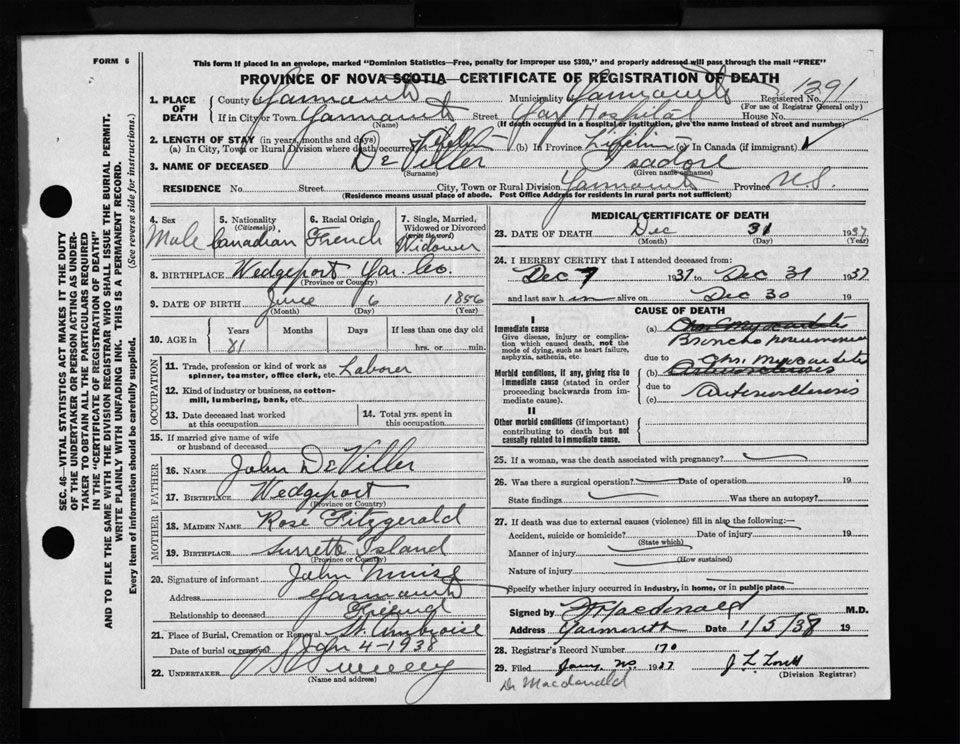 FORM 6
This form if placed in an envelope, marked "Dominion Statistics—Free, penalty for improper use $300," and properly addressed will pass through the mail "FREE"
PROVINCE OF NOVA SCOTIA—CERTIFICATE OF REGISTRATION OF DEATH
1291
1. PLACE OF DEATH
County of Yarmouth Municipality of Yarmouth Registered No.
(For use of Registrar General only)
If in City or Town Yarmouth Street Yar Hospital House No.
(Name) (If death occurred in a hospital or institution, give the name instead of street and number)
2. LENGTH OF STAY (in years, months and days)
(a) In City, Town or Rural Division where death occurred (b) In Province Lifetime (c) In Canada (if immigrant)
3. NAME OF DECEASED DeViller Isadore
(Surname) (Given or names)
RESIDENCE No. Street City, Town or Rural Division Yarmouth Province N.S.
(Residence means usual place of abode. Post Office Address for residents in rural parts not sufficient)
4. Sex Male
5. Nationality (Citizenship) Canadian
6. Racial Origin French
7. Single, Married, Widowed or Divorced (write the word) Widower
8. BIRTHPLACE Wedgeport Yar. Co.
(Province or Country)
9. DATE OF BIRTH June 6 1856
(Month) (Day) (Year)
10. AGE in Years Months Days If less than one day old
81 hrs. or min.
OCCUPATION
11. Trade, profession or kind of work as spinner, teamster, office clerk, etc. Laborer
12. Kind of industry or business, as cotton-mill, lumbering, bank, etc.
13. Date deceased last worked at this occupation
14. Total yrs. spent in this occupation
15. If married give name of wife or husband of deceased
FATHER
16. NAME John DeViller
17. BIRTHPLACE Wedgeport
(Province or Country)
MOTHER
18. MAIDEN NAME Rose Fitzgerald
19. BIRTHPLACE Surrette Island
(Province or Country)
20. Signature of informant John Muise
Address Yarmouth
Relationship to deceased
21. Place of Burial, Cremation or Removal St. Ambroise
Date of burial or removal Jan 4-1938
22. UNDERTAKER
(Name and address)
MEDICAL CERTIFICATE OF DEATH
23. DATE OF DEATH Dec 31 1937
(Month) (Day) (Year)
24. I HEREBY CERTIFY that I attended deceased from:
Dec 7 1937 to Dec 31 1937
and last saw him alive on Dec 30 19
CAUSE OF DEATH
I
Immediate cause
Give disease, injury or complication which caused death, not the mode of dying, such as heart failure, asphyxia, asthenia, etc.
(a) Chr Myocarditis
Broncho pneumonia
due to Chr. Myocarditis
Morbid conditions, if any, giving rise to immediate cause (stated in order proceeding backwards from immediate cause).
(b) Arteriosclerosis
due to
(c) Arteriosclerosis
II
Other morbid conditions (if important) contributing to death but not causally related to immediate cause.
25. If a woman, was the death associated with pregnancy?
26. Was there a surgical operation? Date of operation 19
State findings Was there an autopsy?
27. If death was due to external causes (violence) fill in also the following:—
Accident, suicide or homicide? Date of injury 19
(State which)
Manner of injury
(How sustained)
Nature of injury
Specify whether injury occurred in industry, in home, or in public place
Signed by Macdonald M.D.
Address Yarmouth Date 1/5/38 19
28. Registrar's Record Number 170
29. Filed 1937 J L Lovitt
(Division Registrar)
Dr Macdonald
SEC. 46—VITAL STATISTICS ACT MAKES IT THE DUTY
OF THE UNDERTAKER OR PERSON ACTING AS UNDER-
TAKER TO OBTAIN ALL THE PARTICULARS REQUIRED
IN THE "CERTIFICATE OF REGISTRATION OF DEATH"
AND TO FILE THE SAME WITH THE DIVISION REGISTRAR WHO SHALL ISSUE THE BURIAL PERMIT.
WRITE PLAINLY WITH UNFADING INK. THIS IS A PERMANENT RECORD.
Every item of information should be carefully supplied. (See reverse side for instructions.)